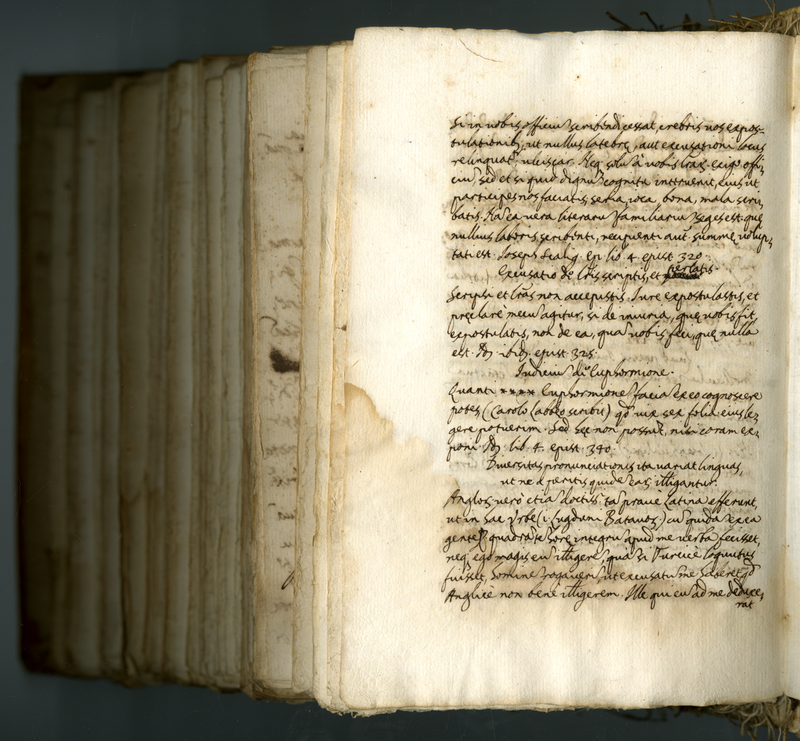 Si in vobis officiũ scribendi cessat, crebris nos expos-
tulationibꝫ, ut nullus latebrę, aut excusationi locus
relinquat', ulciscar. Neq solũ à vobis l̃ras exigo offi-
ciũ, sed et si quid dignũ cognitu intervenit, eius ut
participes nos faciatis seria, ioca, bona, mala scri-
batis. Na ea vera literarũ familiariũ seges est. quę
nullius laboris scribenti, recipienti aut summę volup-
tati est. Joseph Scalig. Ep. lib. 4. epist. 320.
Excusatio de l̃ris scriptis, et
Scripsi et l̃ras non accepistis. Jure expostulastis, et
pręclarè mecũ agitur, si de iniuria, quę vobis fit,
expostulatis, non de ea, quã vobis feci, quę nulla
est. Id. ibid. epist. 325.
Judiciũ de Euphormione.
Quanti Euphormionẽ faciã ex eo cognoscere
potes (Carolo Labbęo scribit) qd vix sex folia eius le-
gere potuerim. Sed hęc non possũt, nisi coram ex-
poni. Id. lib. 4. epist. 340.
Diversitas pronunciationis ita variat linguas,
ut ne a peritis quidẽ eas itelligantur.
Anglos vero etiã doctiss. tã prave latina efferunt,
ut in hac Vrbe (i. Lugduni Batavoꝝ) cũ quidã ex ea
gente quadrãte horę integrũ apud me verba fecisset,
neq ego magis eũ itelligerẽ, quã si Turcice loquutus
fuisset, hominẽ rogaverĩ, ut excusatũ me haberet, qd
Anglice non bene itelligerem. Ille qui eũ ad me deduxe-
rat